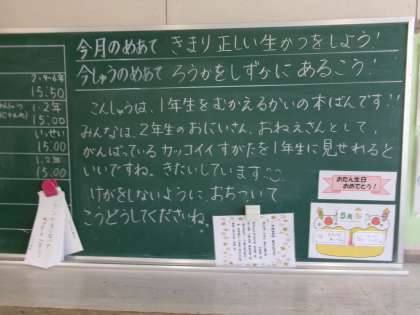 今月のめあて きまり正しい生かつをしよう!
今しゅうのめあて ろうかをしずかに あるこう!
こんしゅうは、1年生をむかえるかいの本ばんです!!
みんなは、2年生のおにいさん、おねえさんとして、
がんばっているカッコイイすがたを1年生に見せれると
いいですね。きたいしています。
けがをしないように、おちついて
こうどうしてくださいね。
2・4・6年
15:50
1・2年
15:00
いっせい
15:00
1.2年
15:00
おたん生日
おめでとう!
5月